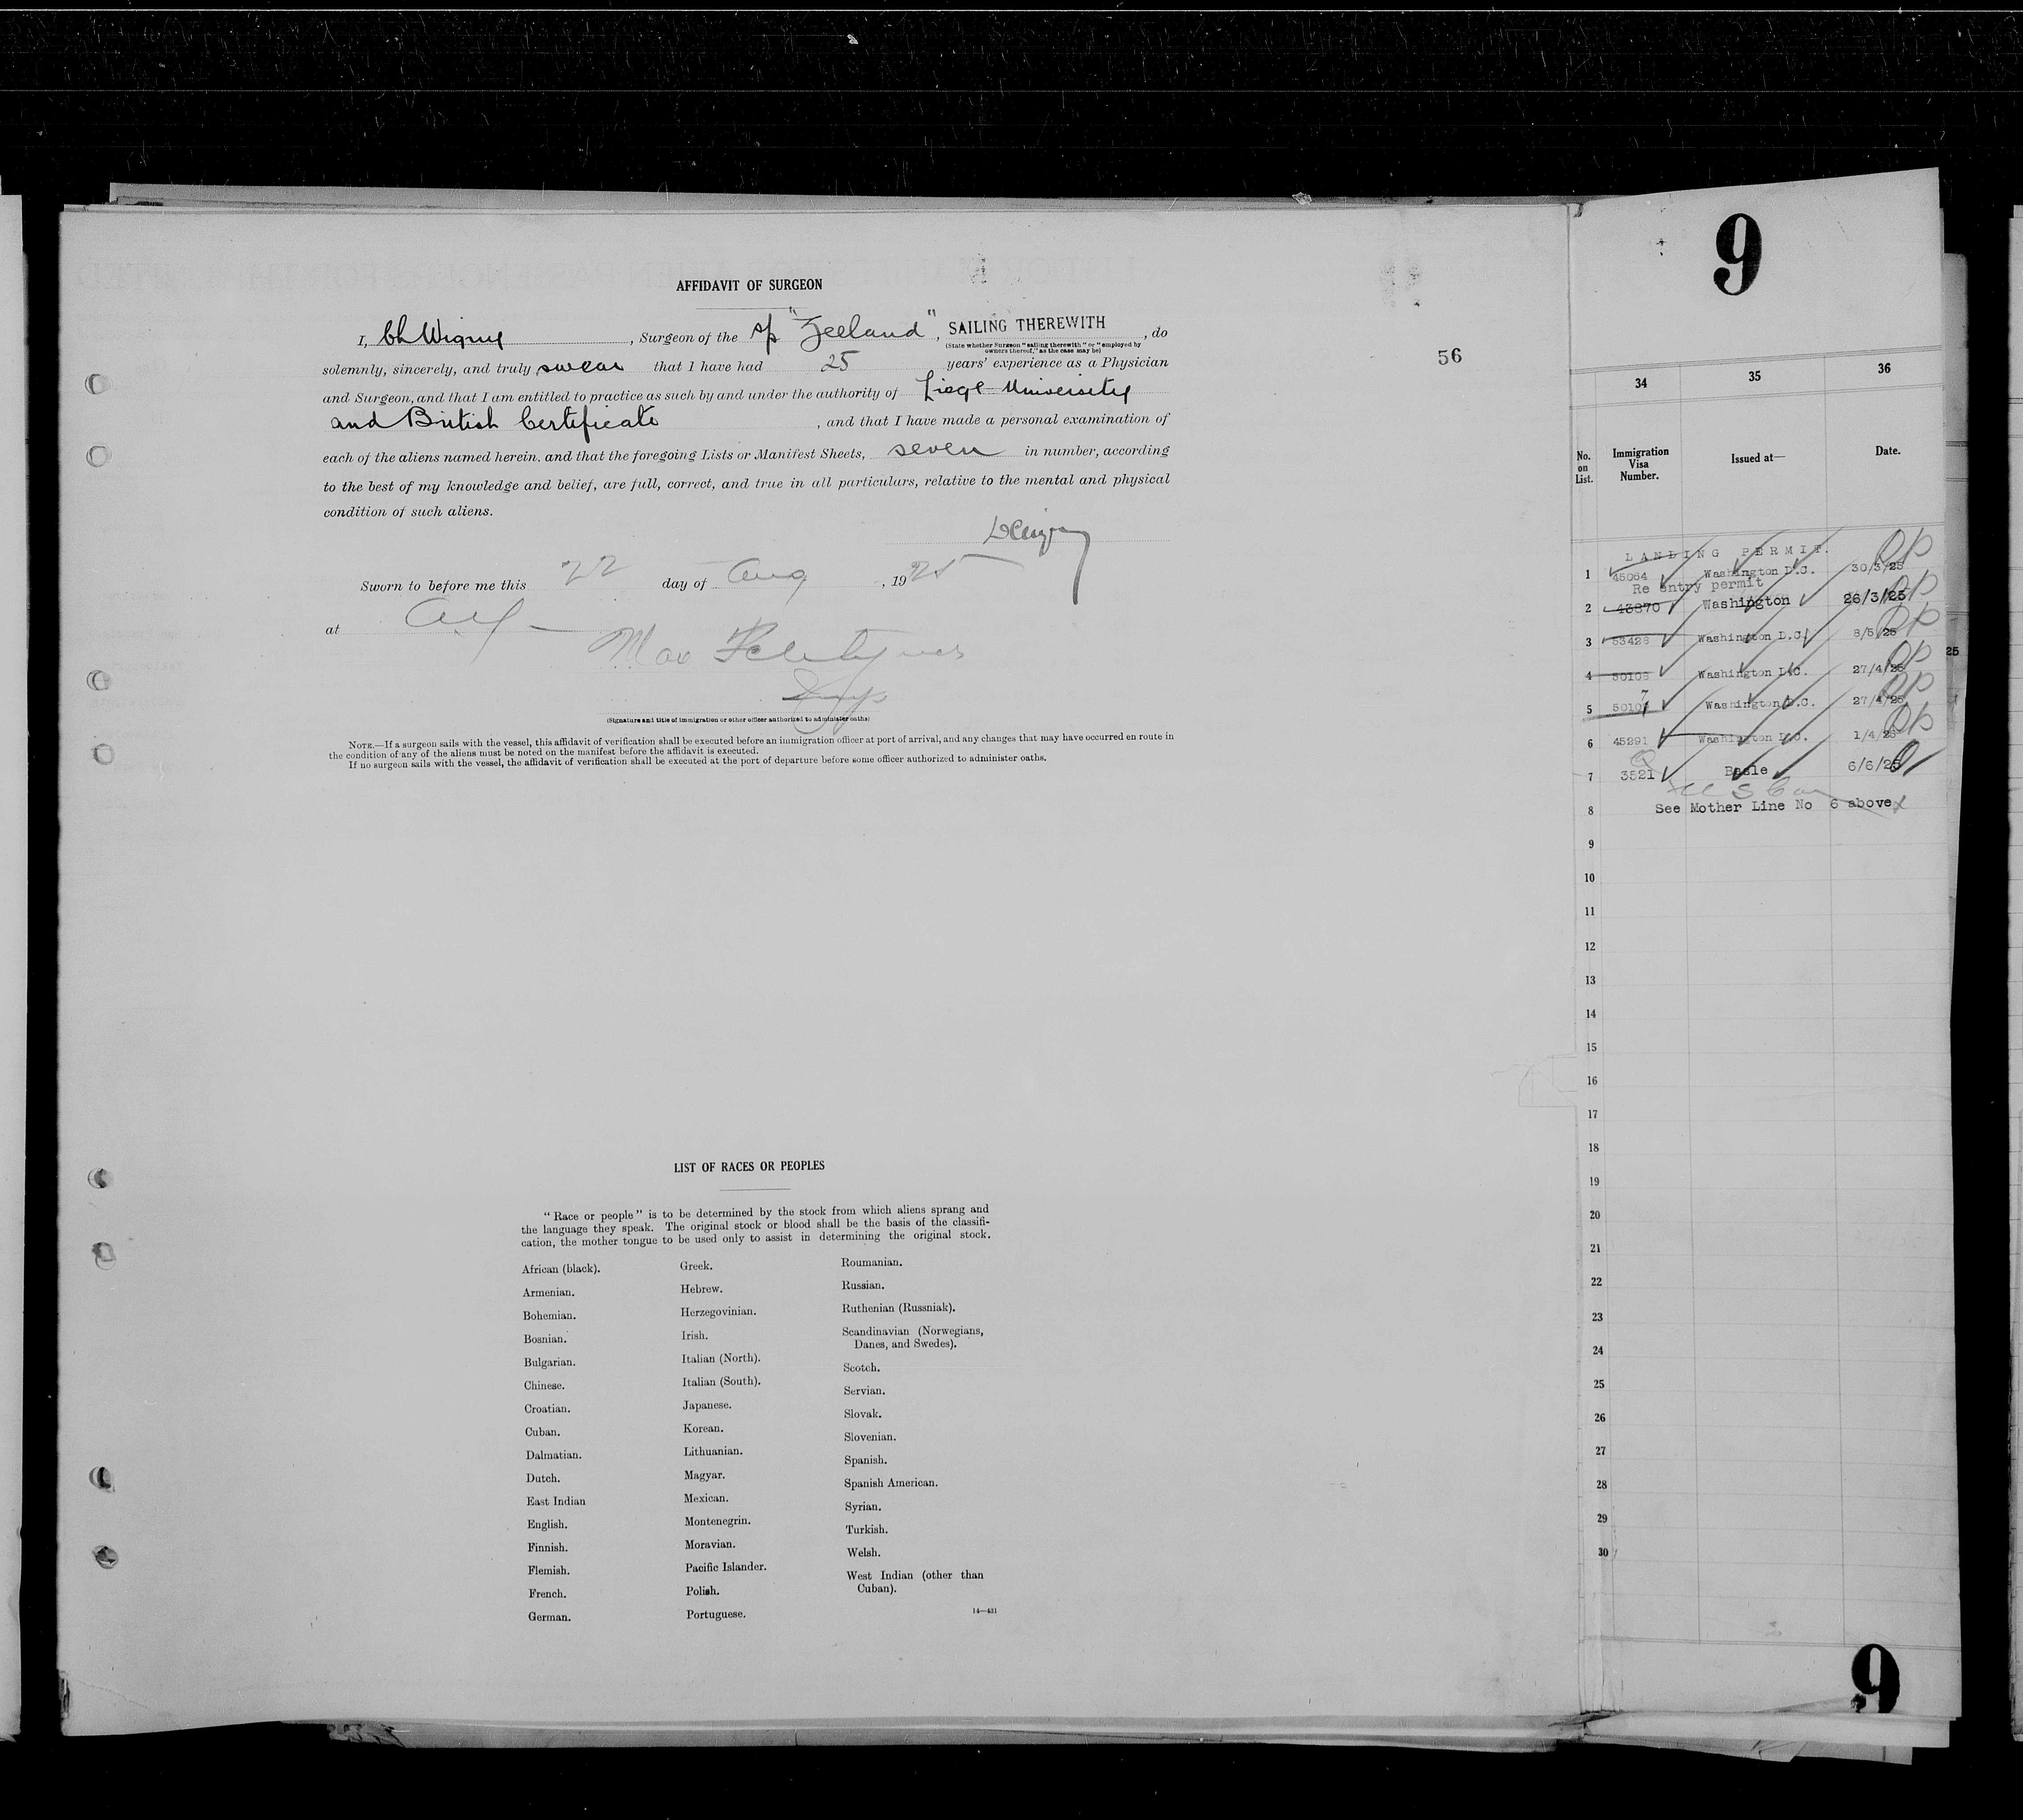 AFFIDAVIT OF SURGEON
I, Ch Wigny, Surgeon of the s/s "Zeeland", SAILING THEREWITH, do
(State whether Surgeon "sailing therewith" or "employed by
owners thereof," as the case may be)
solemnly, sincerely, and truly swear that I have had 25 years' experience as a Physician
and Surgeon, and that I am entitled to practice as such by and under the authority of Liege University
and British Certificate, and that I have made a personal examination of
each of the aliens named herein. and that the foregoing Lists or Manifest Sheets, seven in number, according
to the best of my knowledge and belief, are full, correct, and true in all particulars, relative to the mental and physical
condition of such aliens.
Sworn to before me this 22 day of Aug, 1925
at
Max
(Signature and title of immigration or other officer authorized to administer oaths)
NOTE.—If a surgeon sails with the vessel, this affidavit of verification shall be executed before an immigration officer at port of arrival, and any changes that may have occurred en route in
the condition of any of the aliens must be noted on the manifest before the affidavit is executed.
If no surgeon sails with the vessel, the affidavit of verification shall be executed at the port of departure before some officer authorized to administer oaths.
56
LIST OF RACES OR PEOPLES
"Race or people" is to be determined by the stock from which aliens sprang and
the language they speak. The original stock or blood shall be the basis of the classifi-
cation, the mother tongue to be used only to assist in determining the original stock.
African (black).
Armenian.
Bohemian.
Bosnian.
Bulgarian.
Chinese.
Croatian.
Cuban.
Dalmatian.
Dutch.
East Indian
English.
Finnish.
Flemish.
French.
German.
Greek.
Hebrew.
Herzegovinian.
Irish.
Italian (North).
Italian (South).
Japanese.
Korean.
Lithuanian.
Magyar.
Mexican.
Montenegrin.
Moravian.
Pacific Islander.
Polish.
Portuguese.
Roumanian.
Russian.
Ruthenian (Russniak).
Scandinavian (Norwegians,
Danes, and Swedes).
Scotch.
Servian.
Slovak.
Slovenian.
Spanish.
Spanish American.
Syrian.
Turkish.
Welsh.
West Indian (other than
Cuban).
14—431
9
34 35 36
No. on List. Immigration Visa Number. Issued at— Date.
LANDING PERMIT.
1 45064 Washington D.C. 30/3/25
Re entry permit
2 43870 Washington 26/3/25
3 53428 Washington D.C. 8/5/25
25
4 50108 Washington D.C. 27/4/25
5 50107 Washington D.C. 27/4/25
6 45291 Washington D.C. 1/4/25
7 3521 Basle 6/6/25
8 See Mother Line No 6 above
9
10
11
12
13
14
15
16
17
18
19
20
21
22
23
24
25
26
27
28
29
30
9